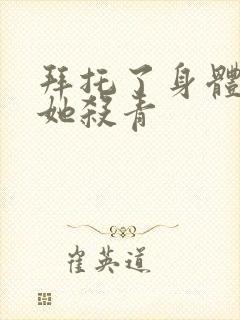 拜托了身體
她殺青
崔英道